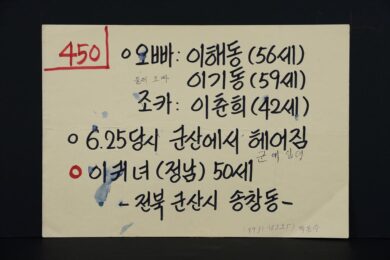 450
○오빠: 이해동 (56세)
이기동 (59세)
조카: 이춘희 (42세)
○ 6.25당시 군산에서 헤어짐
○ 이귀녀 (정남) 50세
- 전북 군산시 송창동 -